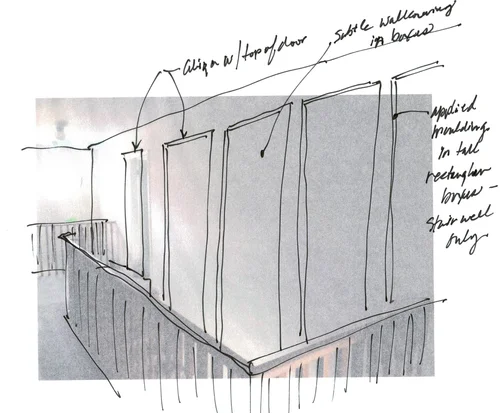 Align w/ top of door
Subtle wallcovering
in boxes
Applied
moulding
in tall
rectangular
boxes –
Stairwell
only.